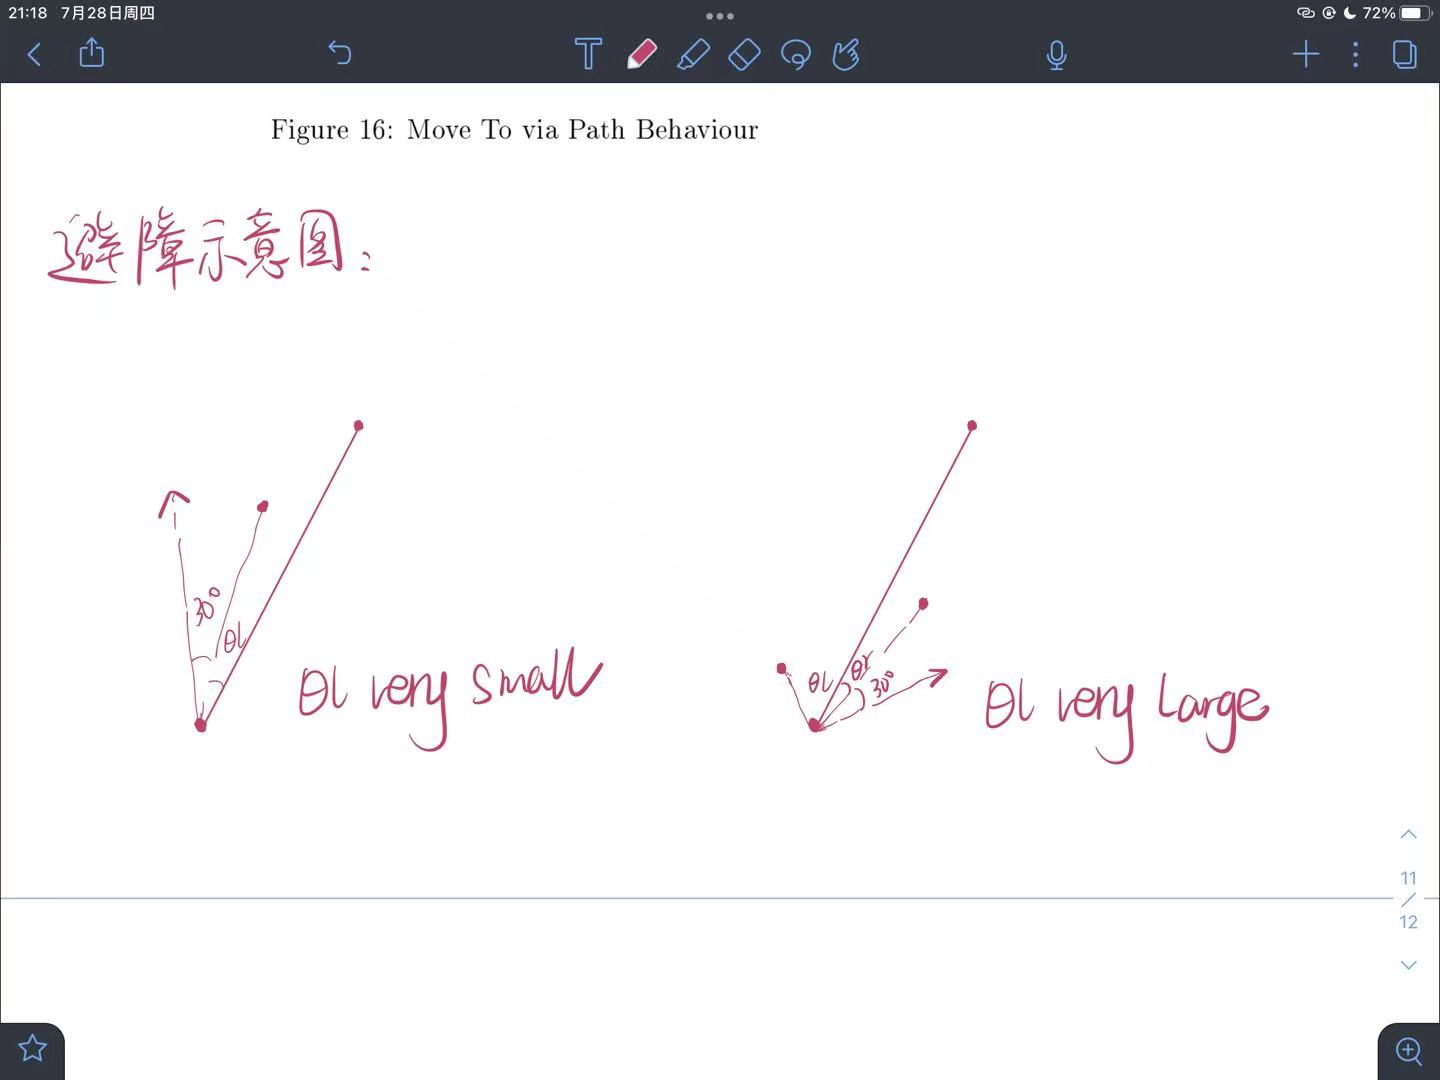 21:18 7月28日周四
72%
Figure 16: Move To via Path Behaviour
避障示意图:
30°
θl
θl very small
θl
θr
30°
θl very Large
11
/
12